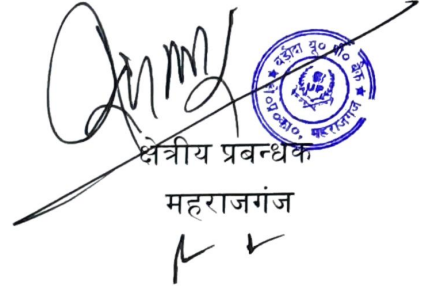 बड़ौदा यू० पी० बैंक
क्षे०का०, महराजगंज
क्षेत्रीय प्रबन्धक
महराजगंज